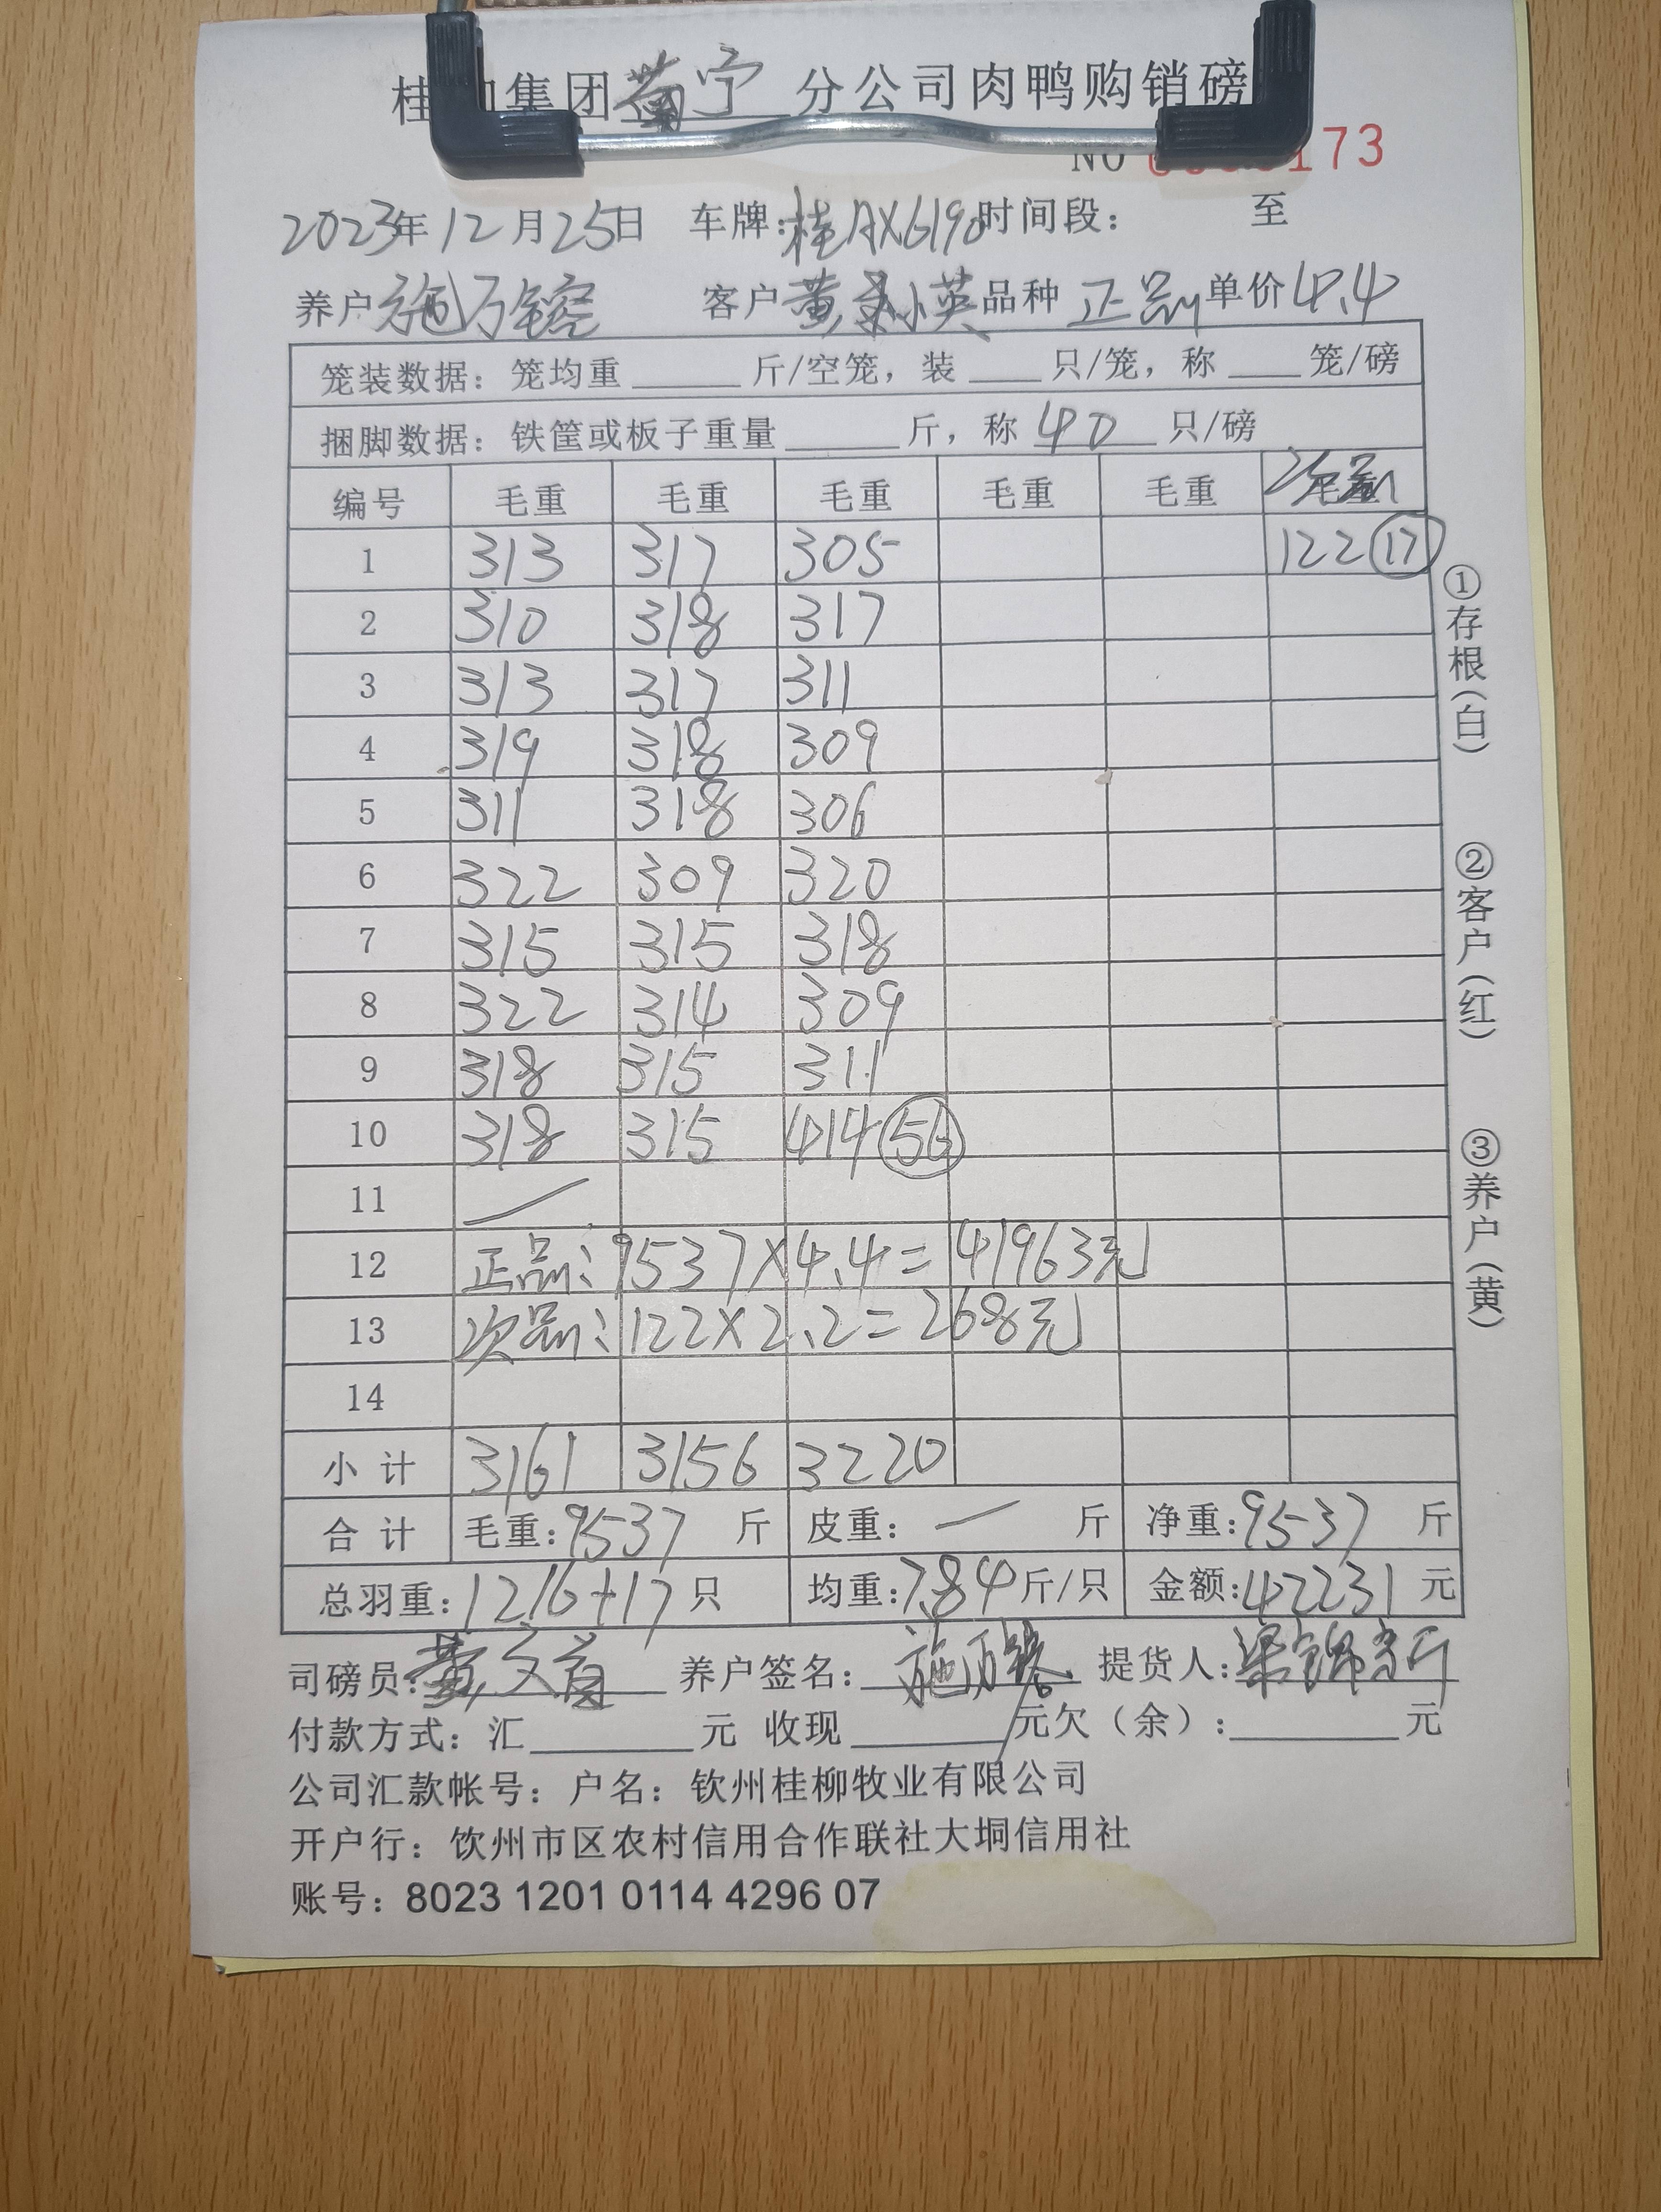 桂 集团 南宁 分公司肉鸭购销磅
NO 173
2023年12月25日 车牌:桂AX6190 时间段: 至
养户 施万镕 客户 黄 小英 品种 正品 单价 4.4
笼装数据: 笼均重 斤/空笼, 装 只/笼, 称 笼/磅
捆脚数据: 铁筐或板子重量 斤, 称 40 只/磅
编号 毛重 毛重 毛重 毛重 毛重 次品
1 313 317 305 122 17
2 310 318 317
3 313 317 311
4 319 318 309
5 311 318 306
6 322 309 320
7 315 315 318
8 322 314 309
9 318 315 311
10 318 315 414 56
11 —
12 正品: 9537×4.4=41963元
13 次品: 122×2.2=268元
14
小计 3161 3156 3220
合计 毛重:9537 斤 皮重: — 斤 净重:9537 斤
总羽重:1216+17只 均重:7.84斤/只 金额:42231 元
司磅员:黄文首 养户签名: 施万镕 提货人:梁锦新
付款方式: 汇 元 收现 元欠(余): 元
公司汇款帐号: 户名: 钦州桂柳牧业有限公司
开户行: 饮州市区农村信用合作联社大垌信用社
账号: 8023 1201 0114 4296 07
①存根(白)
②客户(红)
③养户(黄)